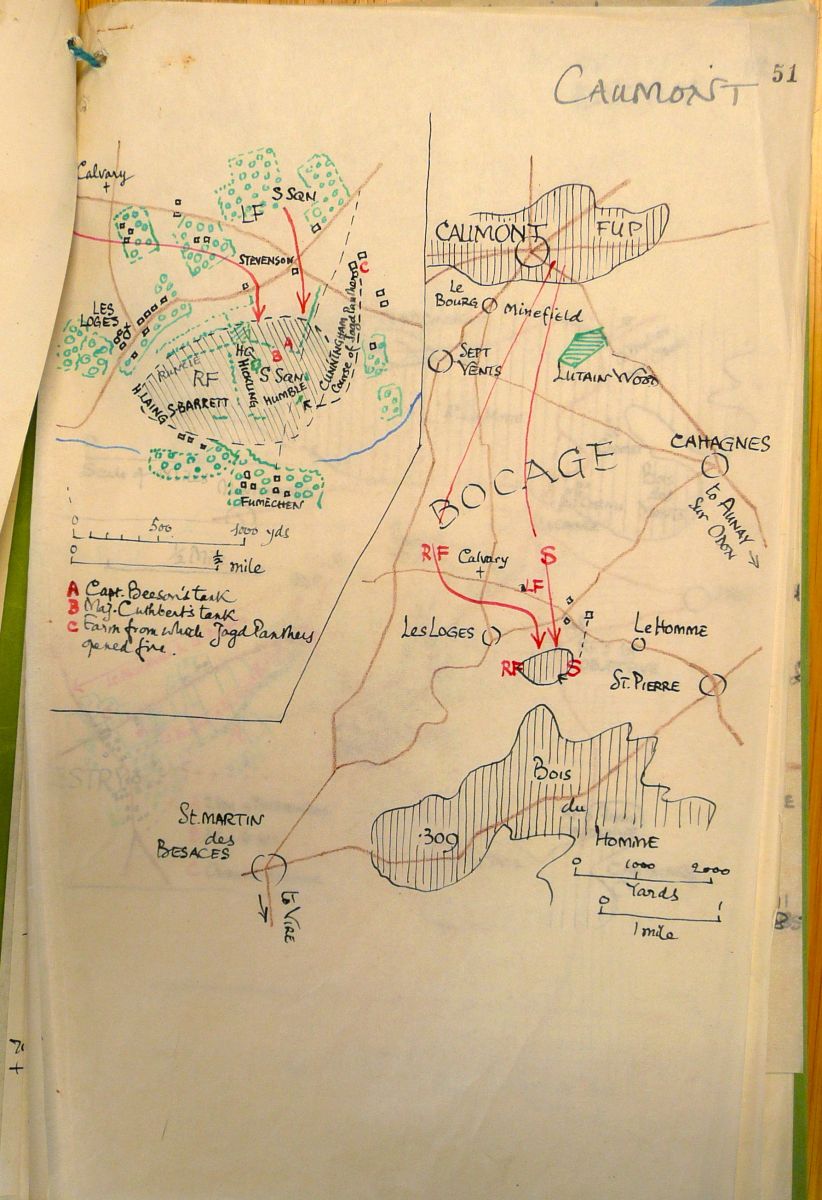 51
CAUMONT
Calvary
S SQN
LF
STEVENSON
C
LES
LOGES
CUNNINGHAM
Course of Jagd Panthers
A
HQ
B
HICKLING
RF
S SQN
HUMBLE
S. BARRETT
H LAING
FUMECHEN
0 500 1000 yds
0 ½ mile
A Capt. Beeson's tank
B Maj. Cuthbert's tank
C Farm from which Jagd Panthers
opened fire.
CAUMONT
FUP
Le
Bourg
Minefield
SEPT
VENTS
LUTAIN WOOD
CAHAGNES
to AUNAY
SUR ODON
BOCAGE
RF
Calvary
S
LF
LES LOGES
LE HOMME
RF
S
ST. PIERRE
Bois
du
HOMME
.309
St. MARTIN
des
BESACES
to VIRE
0 1000 2000
Yards
0 1
1 mile